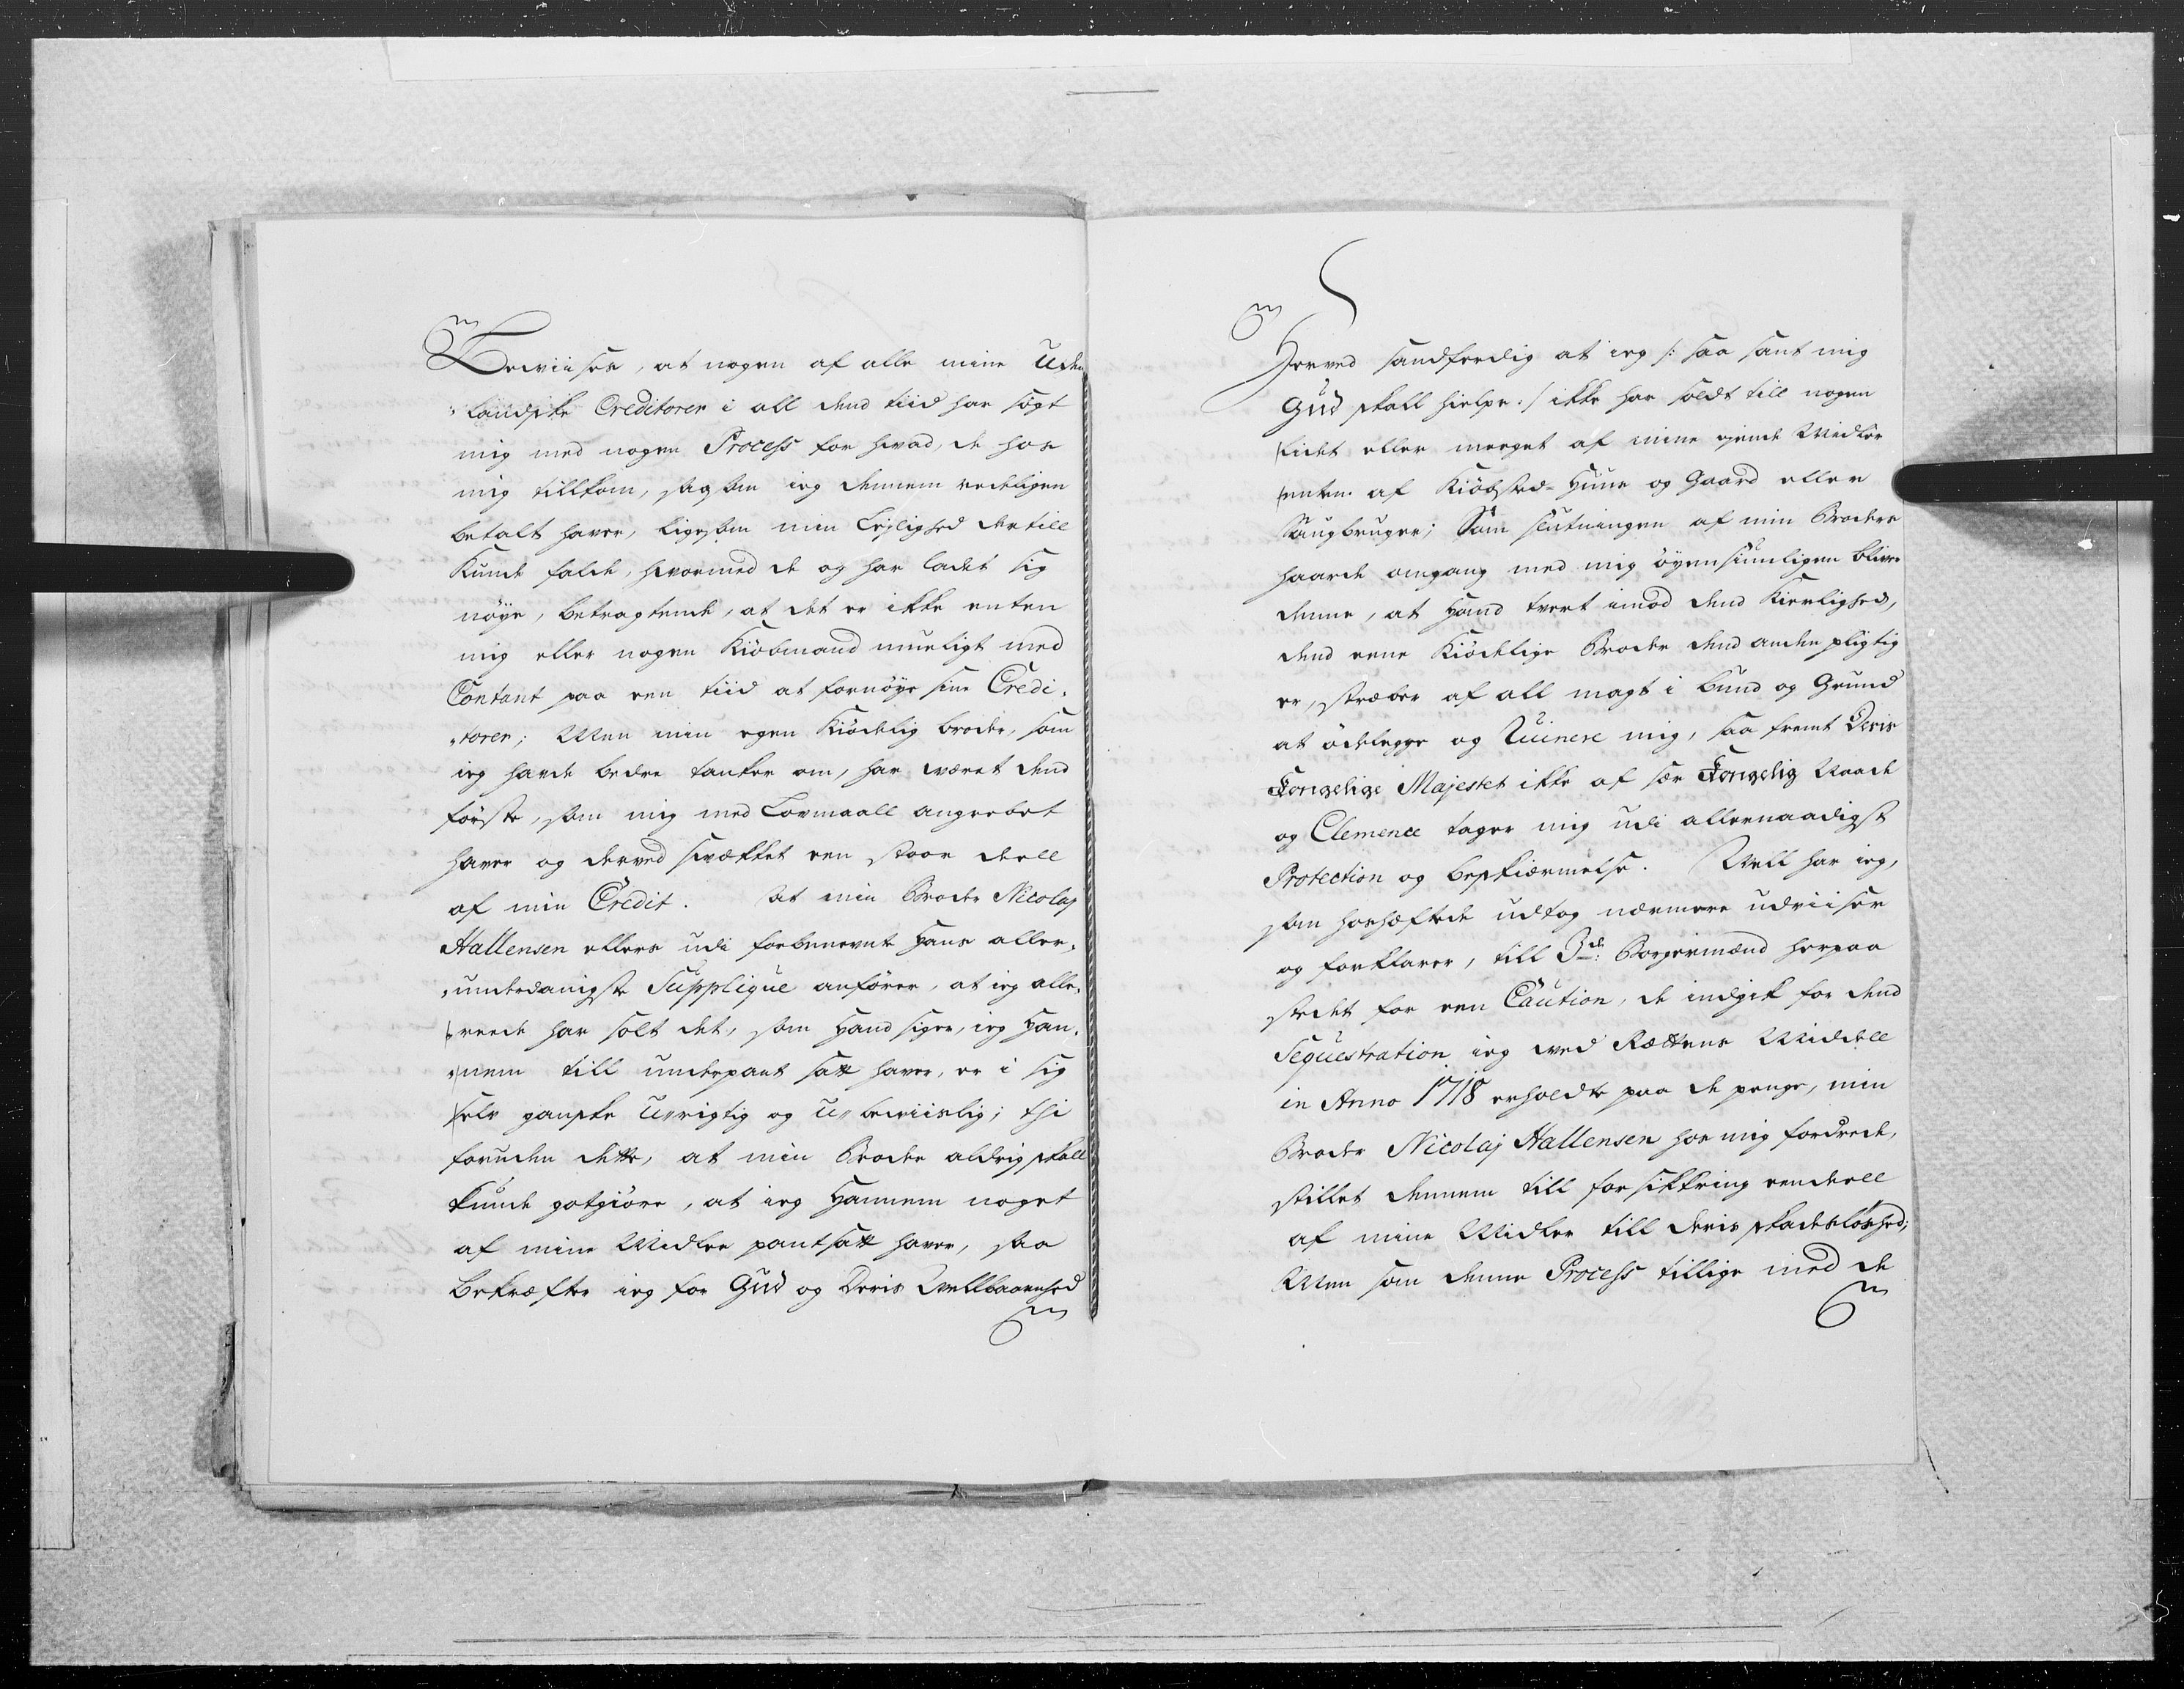 Bewiiser, at nogen af alle mine Uden-
„landske Creditorer i all dend tiid har søgt
mig med nogen Process for hvad, de hos
mig tillkom, som ieg dennem redeligen
betalt haver, ligesom min Leylighed dertill
Kunde falde, hvormed de og har ladet sig
nöye, betragtende, at det er ikke enten
mig eller nogen Kiöbmand mueligt med
Contant paa een tiid at fornöye sine Credi-
„torer; Men min egen Kiödelig broder, som
ieg havde bedre tanker om, har wæret dend
förste, som mig med Lovmaall angrebet
haver og derved svækket een stoor deell
af min Credit. At min Broder Nicolaj
Hallensen ellers udi forbenevnte Hans aller-
„underdanigste Supplique anförer, at ieg alle-
„reede har solt det, som Hand siger, ieg Han-
„nem till underpant satt haver, er i sig
selv ganske U„rigtig og U„beviislig; thi
foruden dette, at min Broder aldrig skall
kunde gotgiöre, at ieg Hannem noget
af mine Midler pantsatt haver, saa
Bekræfter ieg for Gud og Deris Wellbaarenhed
Herved sandferdig at ieg /: saa sant mig
Gud skall hielpe :/ ikke har soldt till nogen
lidet eller meeget af mine ejende Midler
enten af Kiöbsted-Huus og Gaard eller
Saugbruger; Som slutningen af min Broders
haarde omgang med mig öyensiunligen bliver
denne, at Hand tvert imod dend Kierlighed,
dend eene Kiödelige Broder dend anden pligtig
er, stræber af all magt i Bund og Grund
at ödelegge og Ruinere mig, saa fremt Deris
Kongelige Majestet ikke af sær Kongelig Naade
og Clemence tager mig udi allernaadigst
Protection og beskiærmelse. Well har ieg,
som hoshæftede udtog nærmere udviiser
og forklarer, till 3de: Borgermænd herpaa
stedet for een Caution, de indgik for dend
Sequestration ieg wed Rættens Middell
in Anno 1718 erholdte paa de penge, min
Broder Nicolaj Hallensen hos mig fordrede,
stillet dennem till forsikkring eendeell
af mine Midler till deris skadeslöshed;
Men som denne Process tillige med de